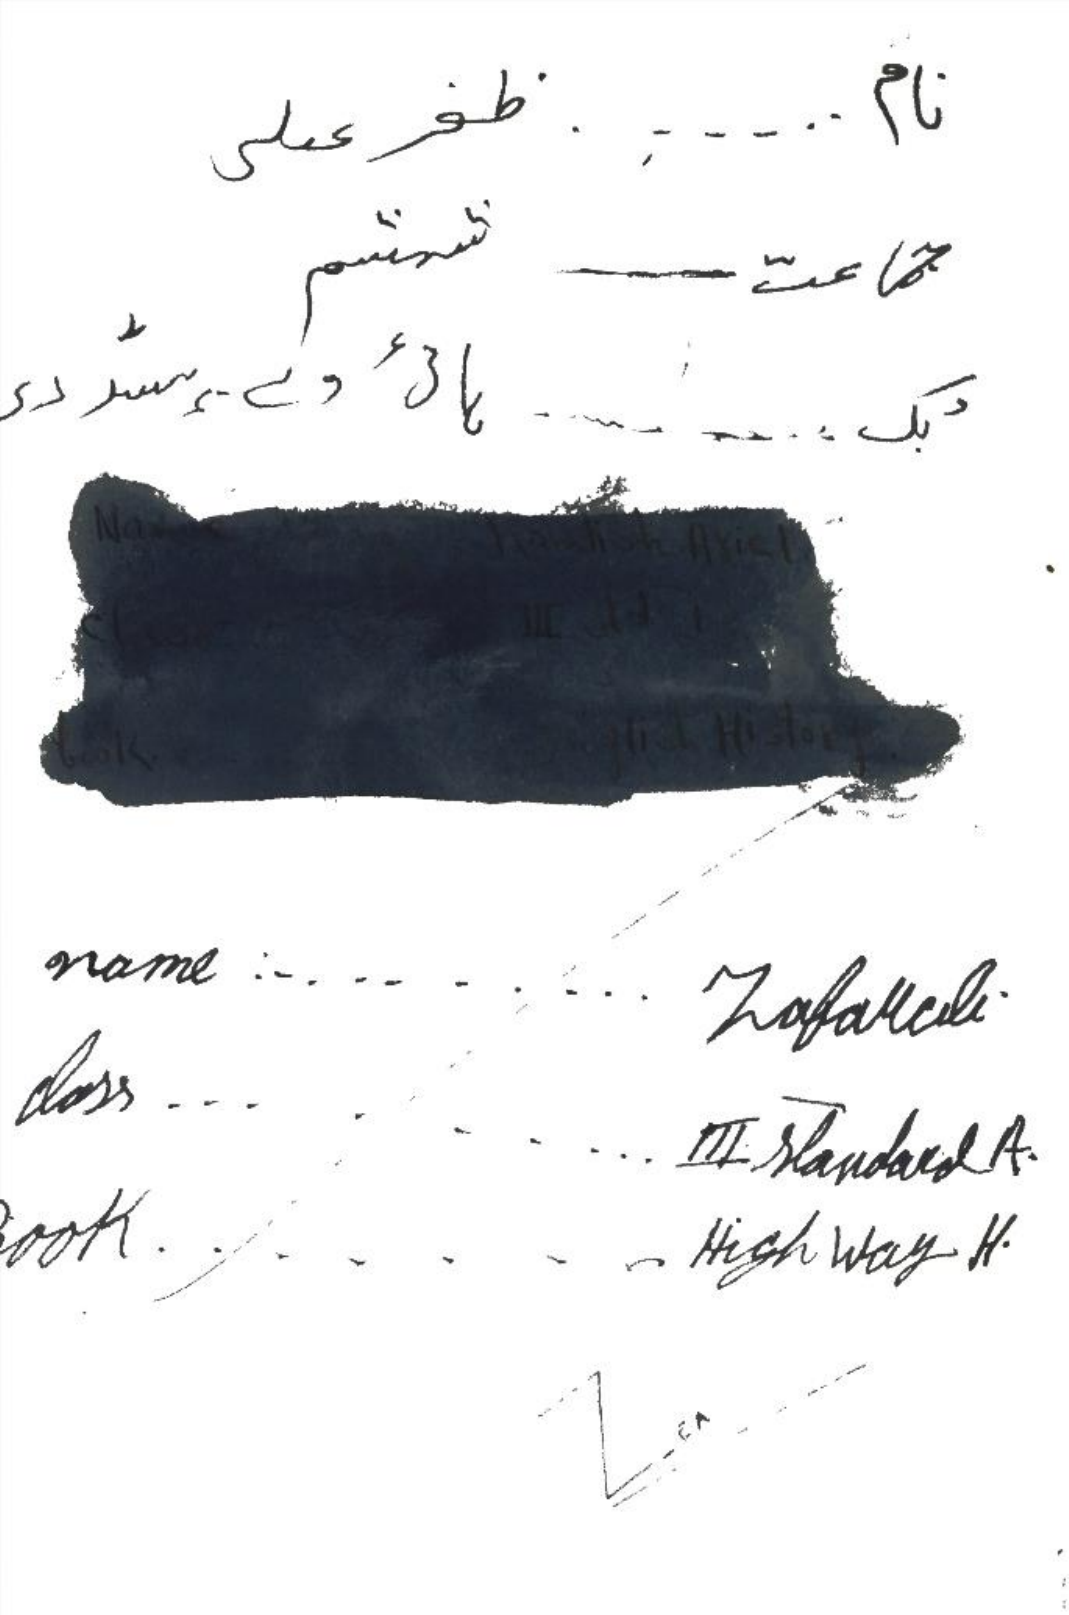 نام ..---. ظفر علی
جماعت — ششم
بک ..... ہائی وے ہسٹری
Name
Class III
book. English History.
name :-. -- - . - -.. Zafar Ali
class --- . - - ... III Standard A.
Book. . - - - - High Way H.